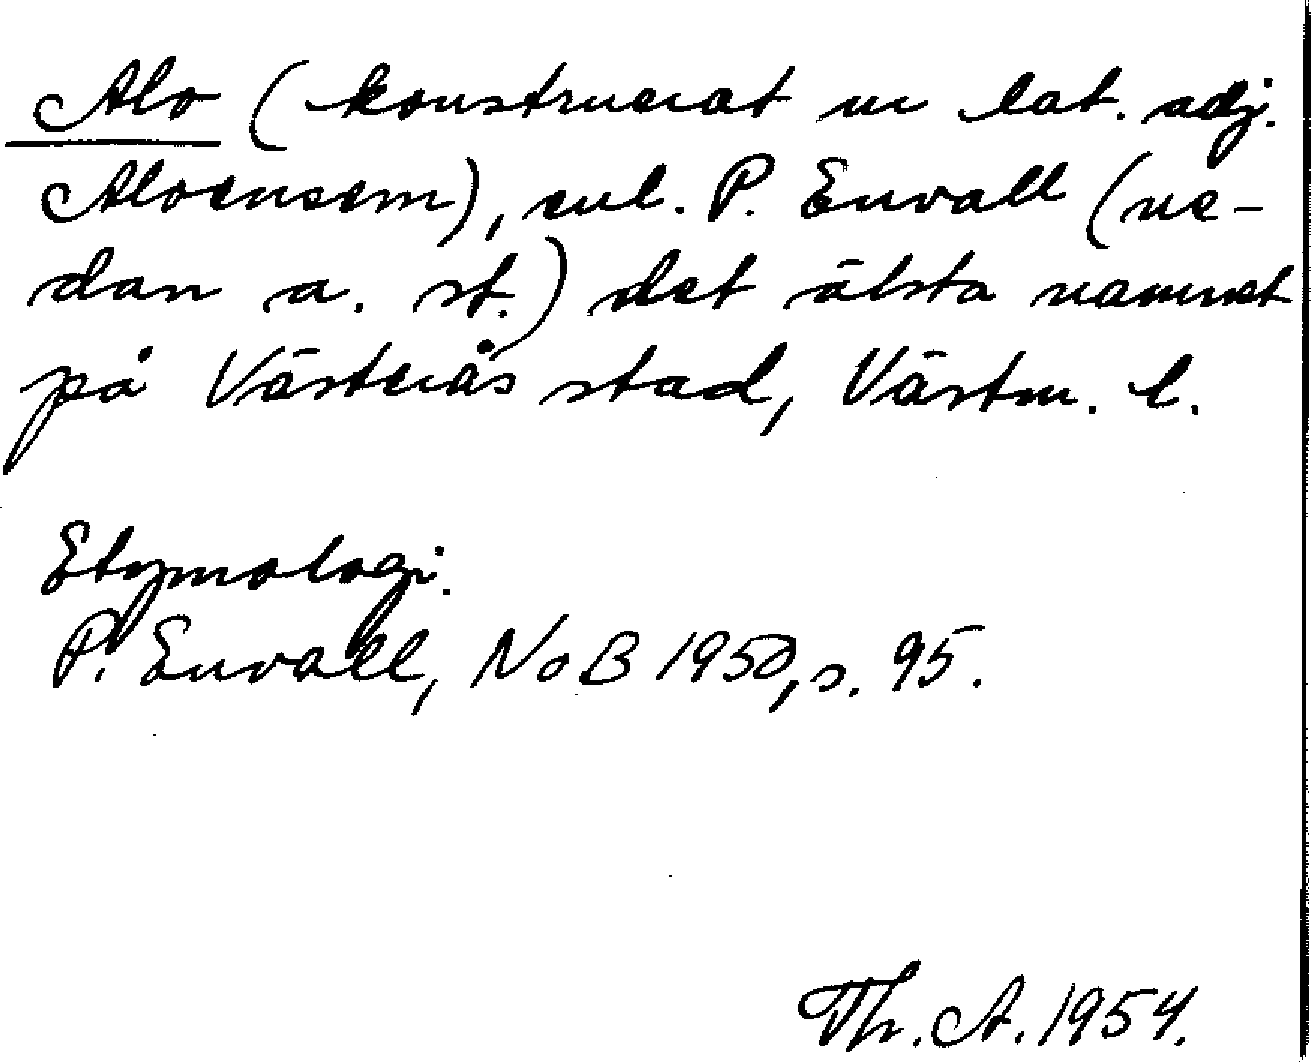 Alo (konstruerat ur lat. adj.
Aloensem), enl. P. Envall (ne-
dan a. st.) det älsta namnet
på Västerås stad, Västm. l.
Etymologi.
P. Envall, NoB 1950, s. 95.
Th. A. 1954.